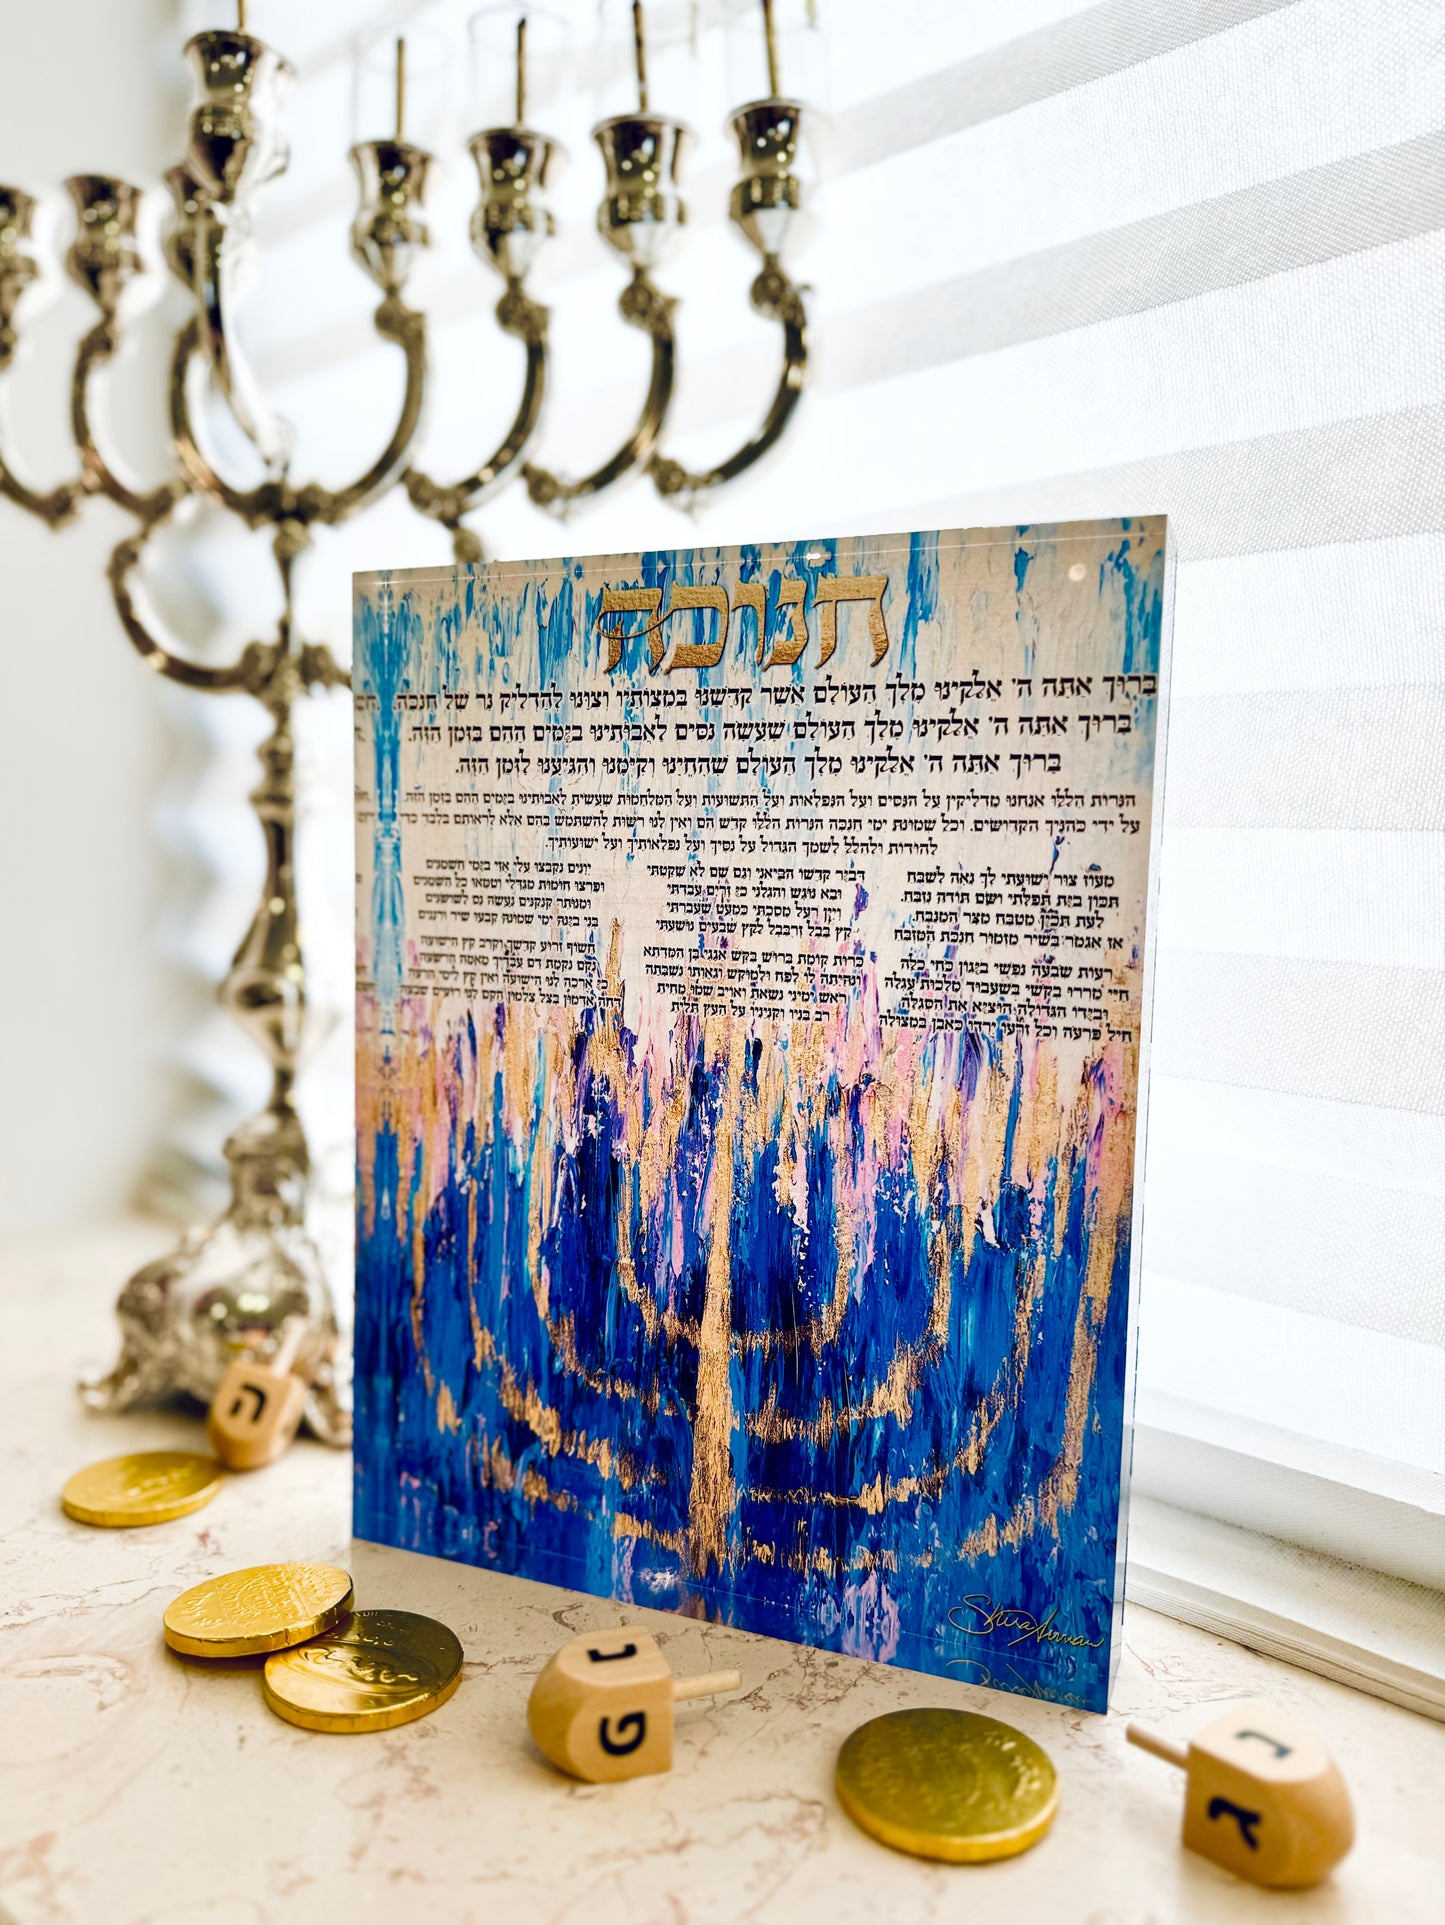 חנוכה
בָּרוּךְ אַתָּה ה' אֱלֹקֵינוּ מֶלֶךְ הָעוֹלָם אֲשֶׁר קִדְּשָׁנוּ בְּמִצְוֹתָיו וְצִוָּנוּ לְהַדְלִיק נֵר שֶׁל חֲנֻכָּה.
בָּרוּךְ אַתָּה ה' אֱלֹקֵינוּ מֶלֶךְ הָעוֹלָם שֶׁעָשָׂה נִסִּים לַאֲבוֹתֵינוּ בַּיָּמִים הָהֵם בַּזְּמַן הַזֶּה.
בָּרוּךְ אַתָּה ה' אֱלֹקֵינוּ מֶלֶךְ הָעוֹלָם שֶׁהֶחֱיָנוּ וְקִיְּמָנוּ וְהִגִּיעָנוּ לַזְּמַן הַזֶּה.
הנרות הללו אנחנו מדליקין על הנסים ועל הנפלאות ועל התשועות ועל המלחמות שעשית לאבותינו בימים ההם בזמן הזה.
על ידי כהניך הקדושים. וכל שמונת ימי חנכה הנרות הללו קדש הם ואין לנו רשות להשתמש בהם אלא לראותם בלבד כדי
להודות ולהלל לשמך הגדול על נסיך ועל נפלאותיך ועל ישועותיך.
מעוז צור ישועתי לך נאה לשבח
תכון בית תפלתי ושם תודה נזבח.
לעת תכין מטבח מצר המנבח.
אז אגמר בשיר מזמור חנכת המזבח
רעות שבעה נפשי ביגון כחי כלה
חיי מררו בקשי בשעבוד מלכות עגלה
ובידו הגדולה הוציא את הסגלה
חיל פרעה וכל זרעו ירדו כאבן במצולה
דביר קדשו הביאני וגם שם לא שקטתי
ובא נוגש והגלני כי זרים עבדתי
ויין רעל מסכתי כמעט שעברתי
קץ בבל זרבבל לקץ שבעים נושעתי
כרות קומת ברוש בקש אגגי בן המדתא
ונהיתה לו לפח ולמוקש וגאותו נשבתה
ראש ימיני נשאת ואויב שמו מחית
רב בניו וקניניו על העץ תלית
יונים נקבצו עלי אזי בימי חשמנים
ופרצו חומות מגדלי וטמאו כל השמנים
ומנותר קנקנים נעשה נס לשושנים
בני בינה ימי שמונה קבעו שיר ורננים
חשוף זרוע קדשך וקרב קץ הישועה
נקם נקמת דם עבדיך מאמה הרשעה
כי ארכה לנו הישועה ואין קץ לימי הרעה
דחה אדמון בצל צלמון הקם לנו רועים שבעה
ה
נ
ג
ט